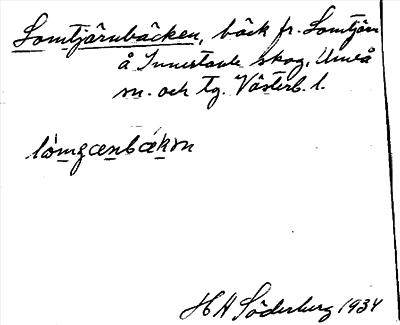 Lomtjärnbäcken, bäck fr. Lomtjärn
å Innertavle skog, Umeå
sn. och tg. Västerb. l.
lòmgænbǽkən
H A Söderberg 1934